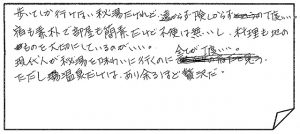 歩いてしか行けない秘湯だけれど、遠からず険しからずの丁度いい。
宿も素朴で部屋も簡素だけど不便は無いし、料理も地の
ものを大切にしているのがいい。全てが丁度いい。
現代人が秘湯を味わいに行くのに
ただし場温泉だけは、あり余るほど贅沢だ。